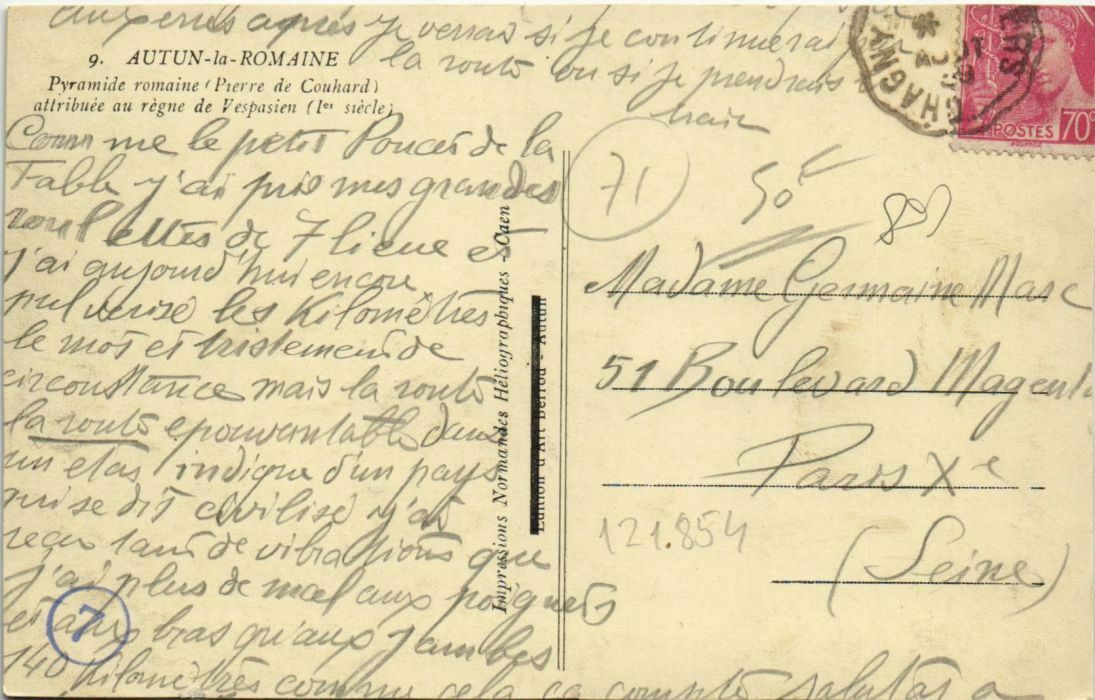 auxerres après je verrai si je continuerai
la route ou si je prendrais
train
9. AUTUN-la-ROMAINE
Pyramide romaine (Pierre de Couhard)
attribuée au règne de Vespasien (Ier siècle)
Comme le petit Poucet de la
Fable j'ai pris mes grandes
roulettes de 7 lieue et
j'ai aujourd'hui encore
pulverisé les Kilomètres
le mot et tristement de
circonstance mais la route
la route epouvantable dans
un etat indigne d'un pays
qui se dit civilisé j'ai
reçu tant de vibrations que
j'ai plus de mal aux poignets
et aux bras qu'aux jambes
140 Kilomètres comme cela ça compte salutas a
7
Impressions Normandes Héliographiques - Caen
Edition d'Art Berrod - Autun
CHAGNY
POSTES 70c
71
50F
Madame Germaine Marc
51 Boulevard Magenta
Paris Xe
(Seine)
121.854